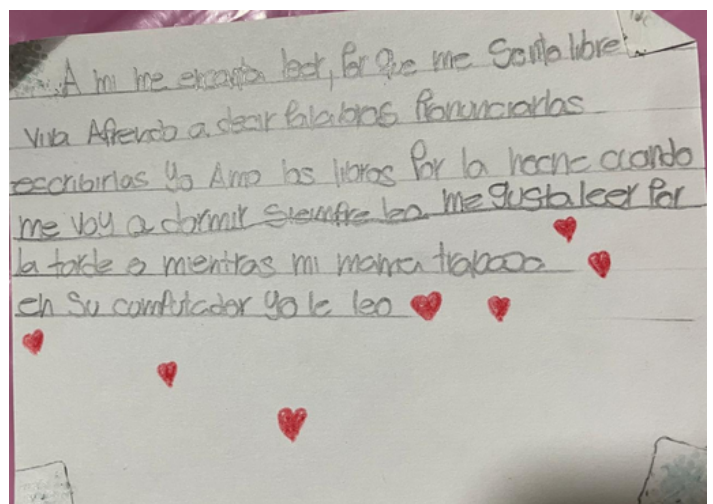 A mi me encanta leer, Por que me Sento libre
viva Aprendo a decir Palabras Pronunciarlas
escribirlas yo Amo los libros Por la noche cuando
me voy a dormir siempre leo me gusta leer Por
la tarde o mientras mi mama trabaja
en su computador yo le leo